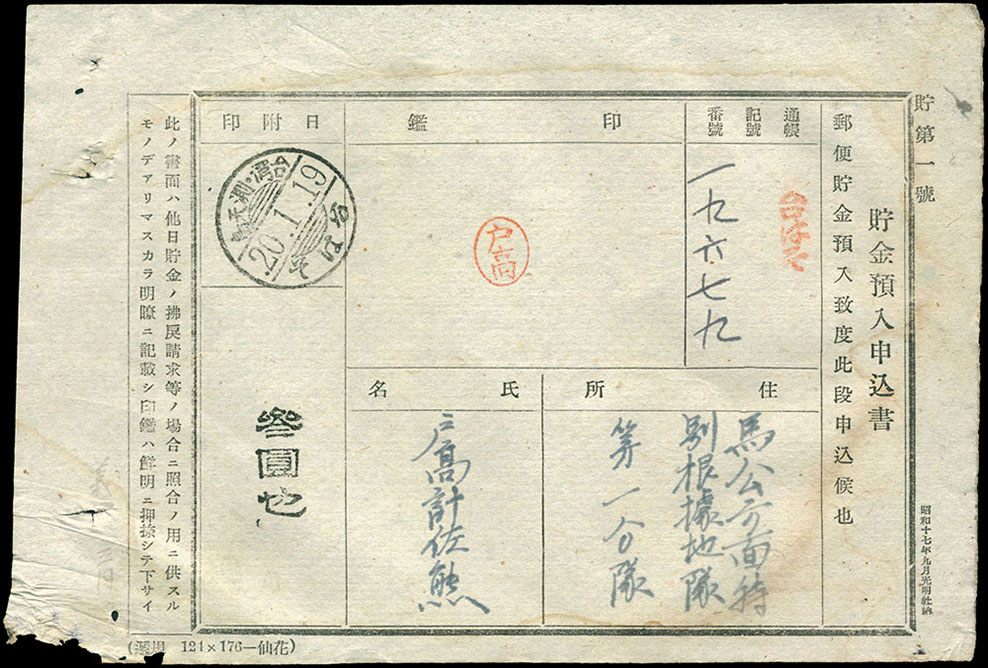 貯第一號
貯金預入申込書
郵便貯金預入致度此段申込候也
昭和十七年九月光明社納
通帳
記號
番號
台はそ
一九六七九
印鑑
戸高
日附印
台灣・測天島
20.1.19
台はそ
參圓也
住所
馬公方面特
別根據地隊
第一分隊
氏名
戸高計佐熊
此ノ書面ハ他日貯金ノ拂戻請求等ノ場合ニ照合ノ用ニ供スル
モノデアリマスカラ明瞭ニ記載シ印鑑ハ鮮明ニ押捺シテ下サイ
124×176—仙花)